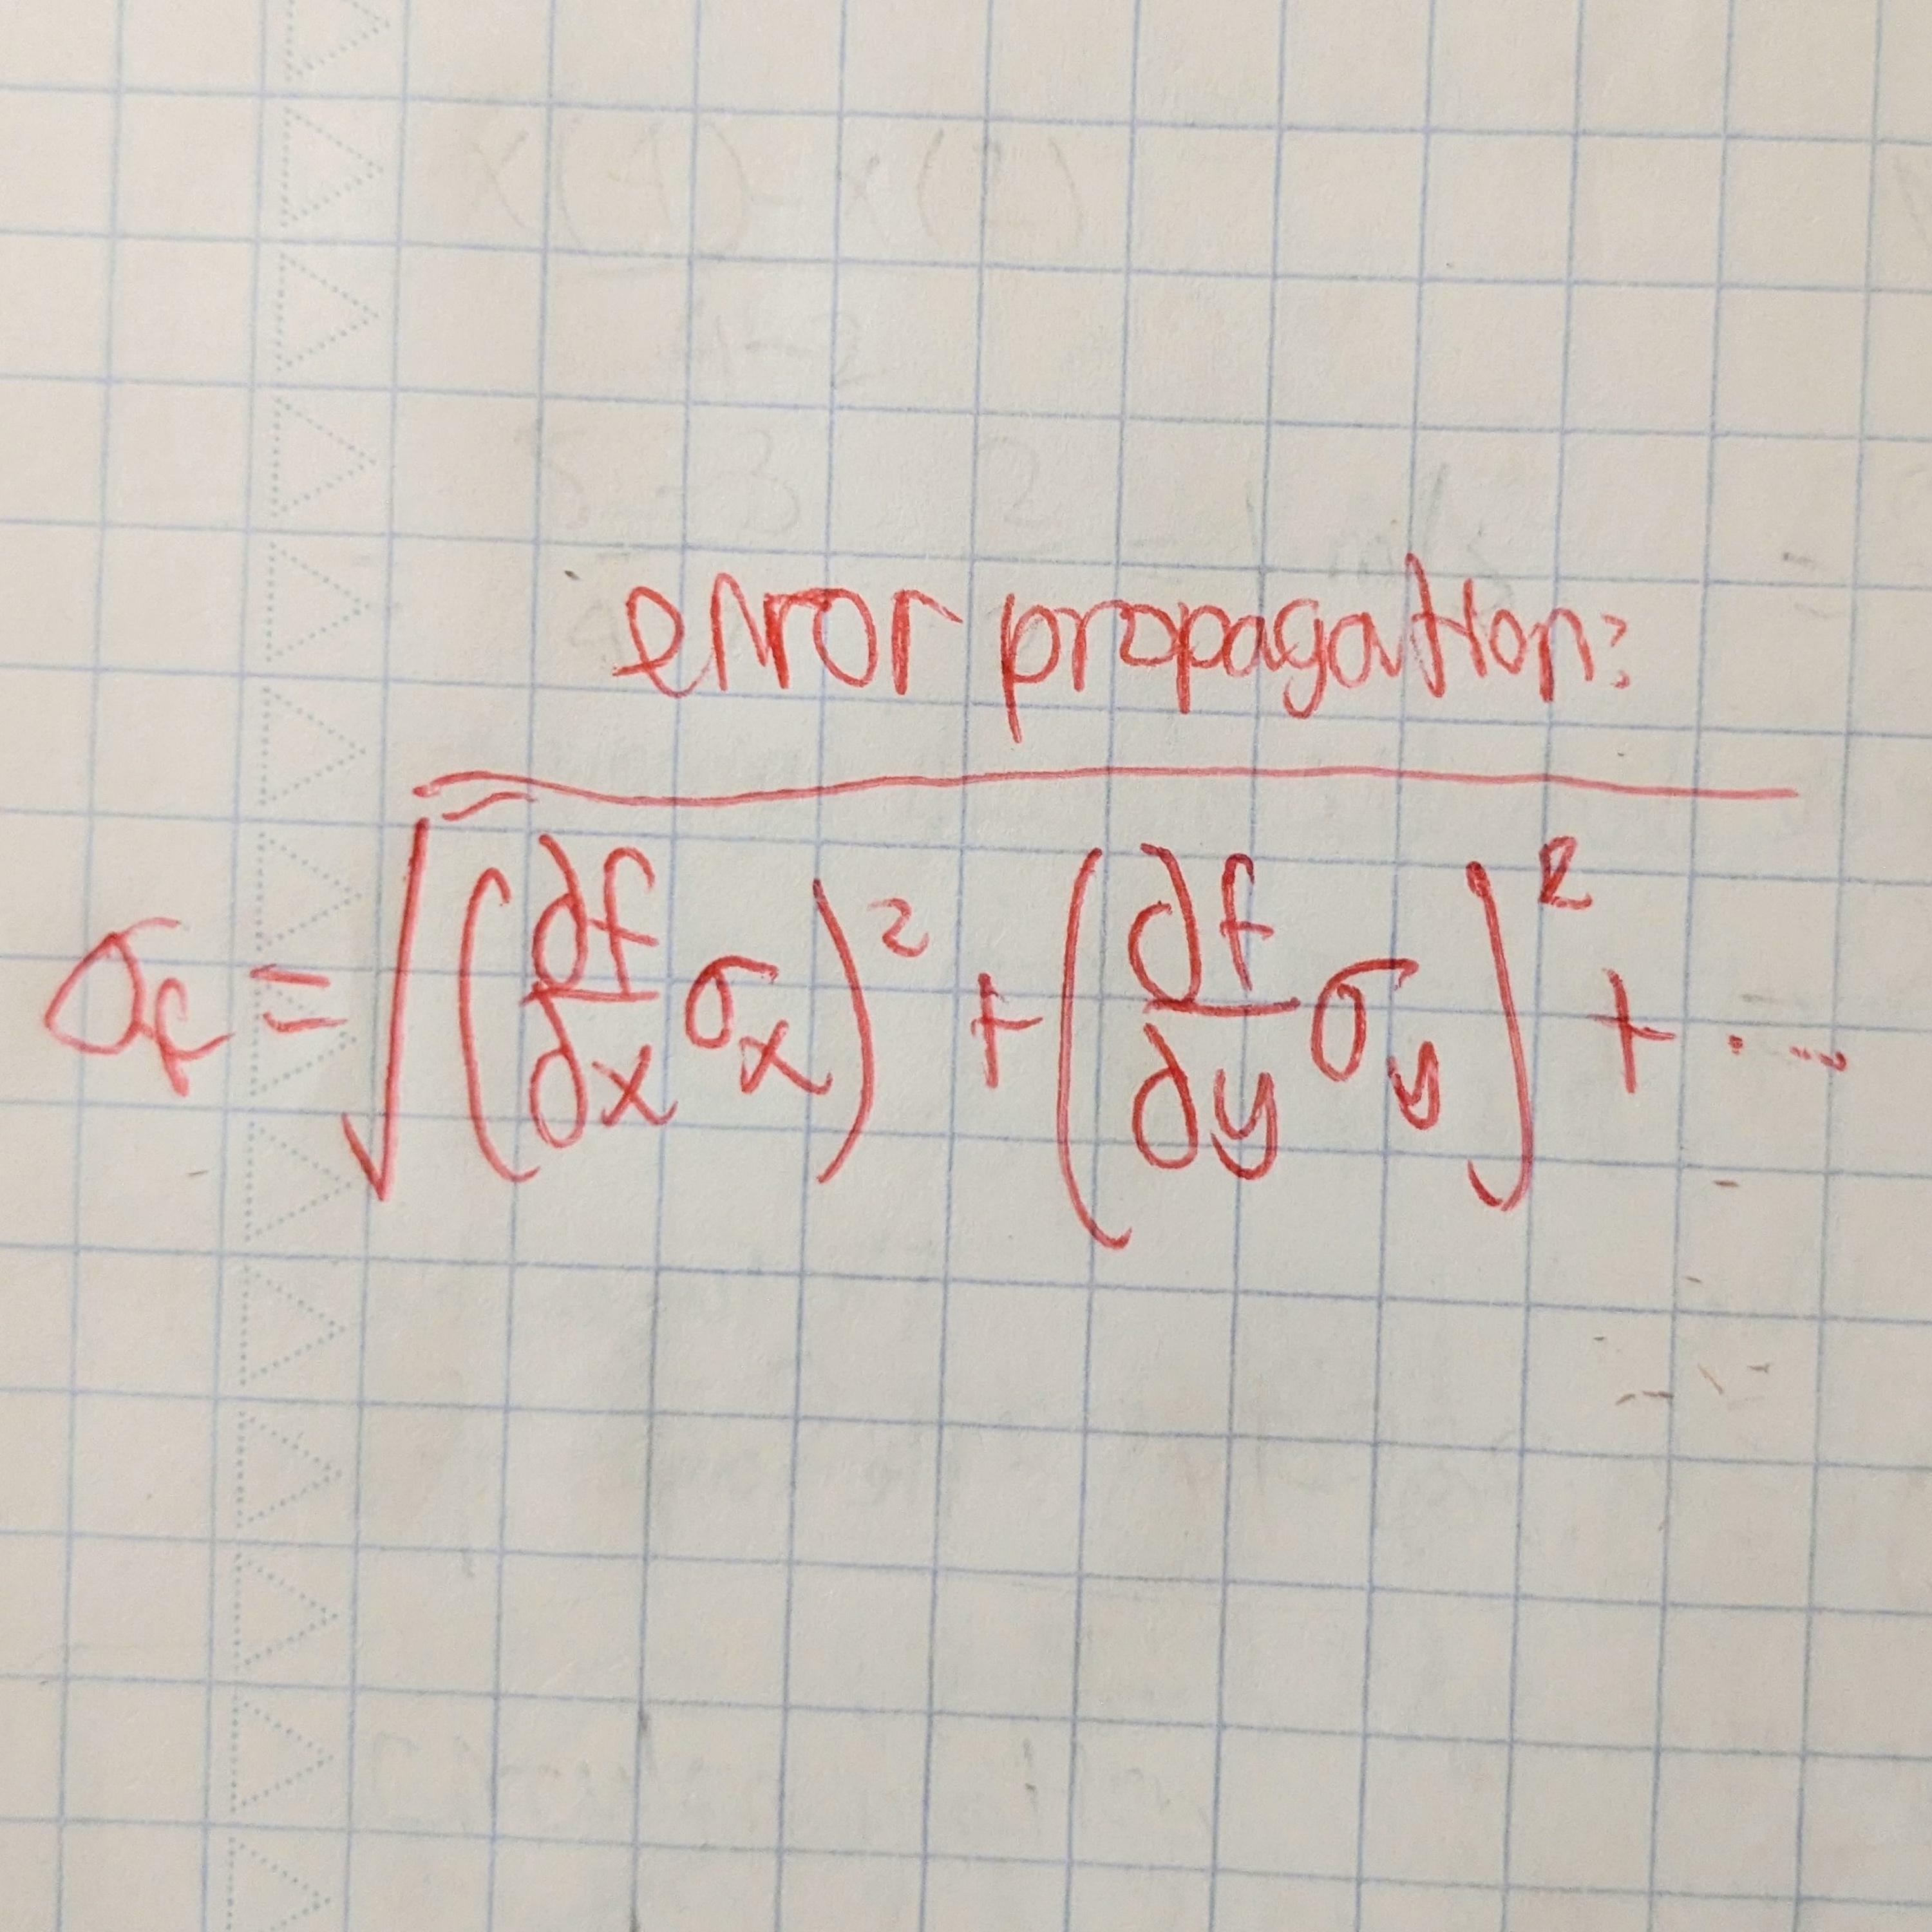 error propagation:
σf = √((∂f/∂x σx)² + (∂f/∂y σy)² + ...